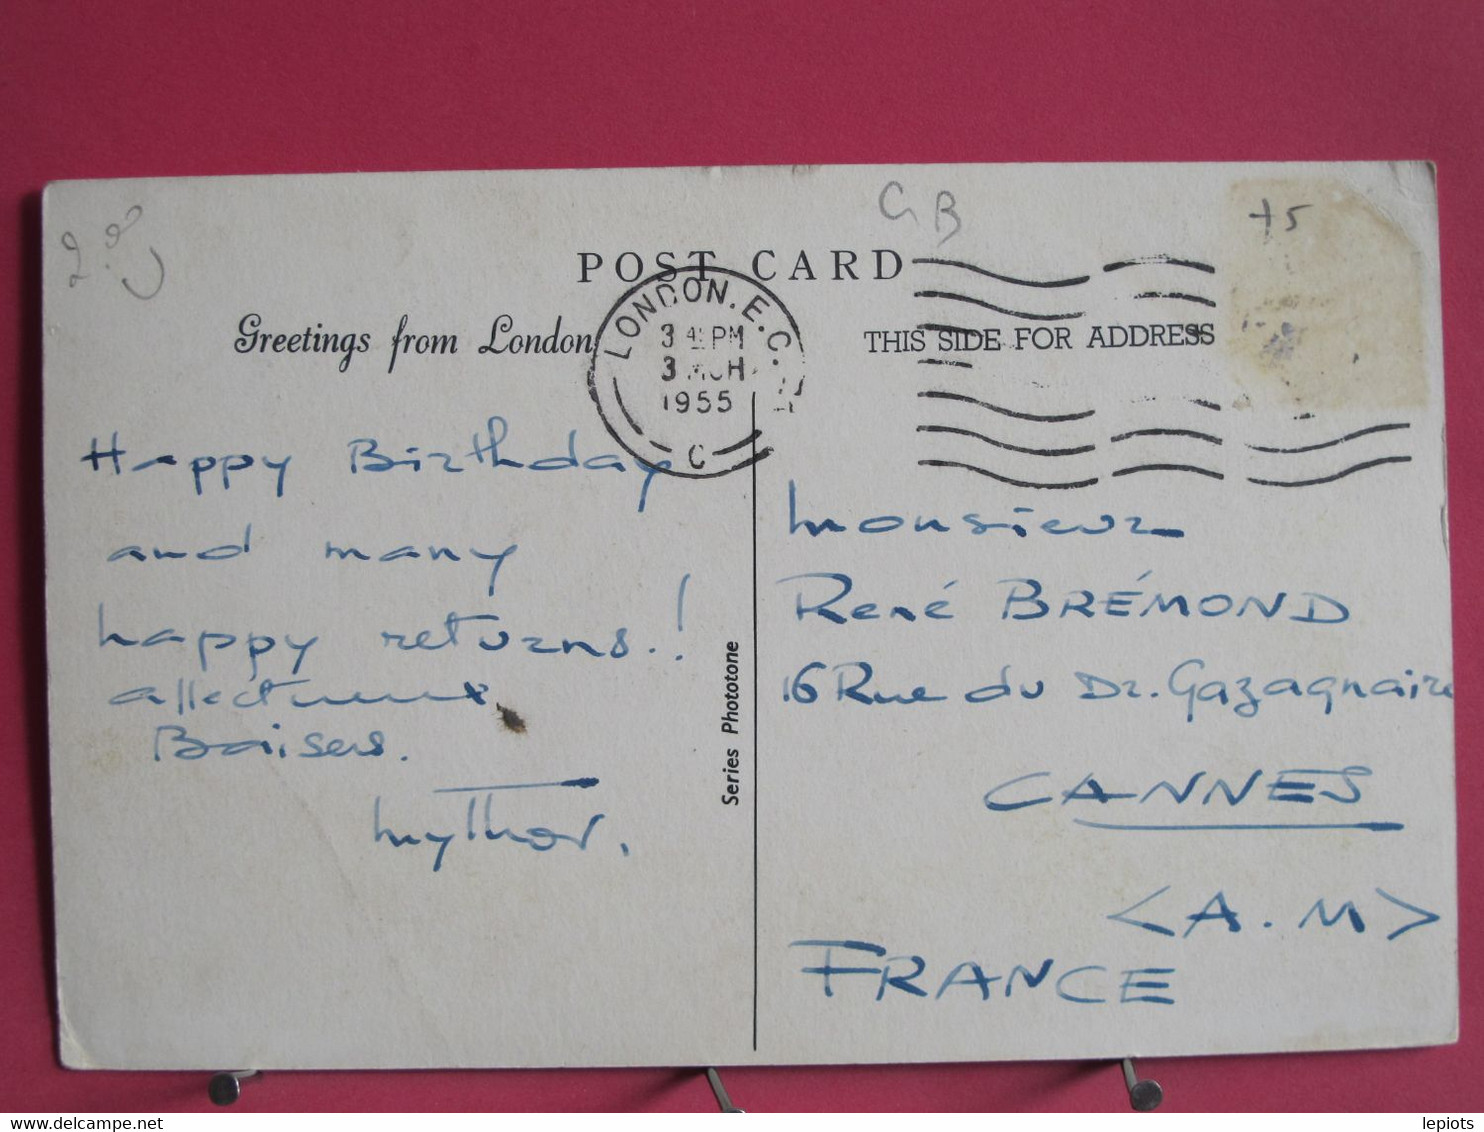 G B
+5
POST CARD
Greetings from London
THIS SIDE FOR ADDRESS
LONDON. E.C.
3 45 PM
3 MCH
1955
C
Happy Birthday
and many
happy returns.!
affectueux
Baisers.
Series Phototone
Monsieur
René BRÉMOND
16 Rue du Dr. Gazagnaire
CANNES
<A.M>
FRANCE
lepiots
www.delcampe.net